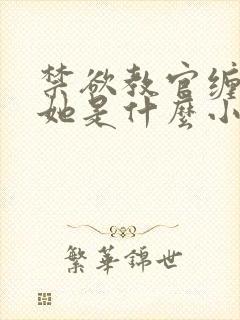 禁欲教官缠
她是什麼小
繁華錦世